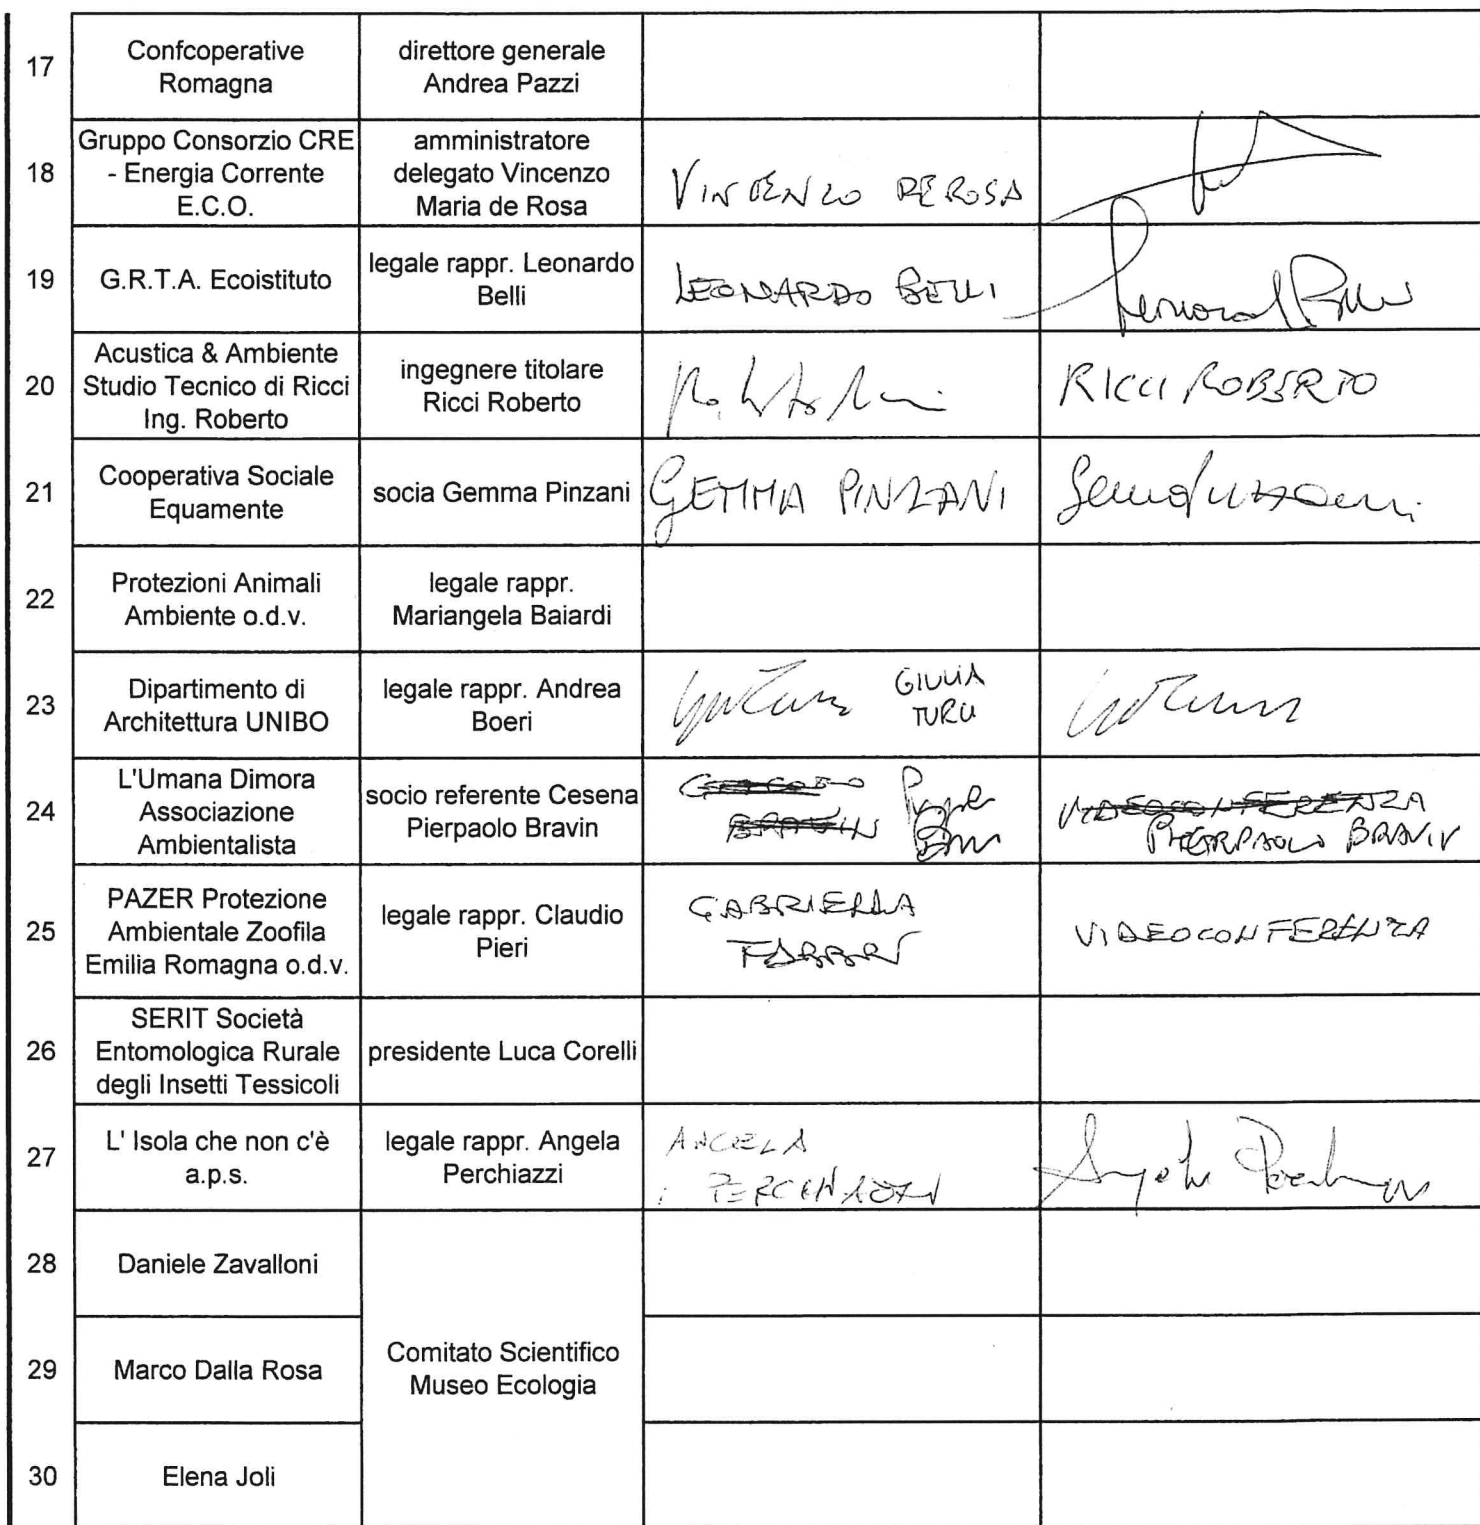 17
Confcoperative
Romagna
direttore generale
Andrea Pazzi
18
Gruppo Consorzio CRE
- Energia Corrente
E.C.O.
amministratore
delegato Vincenzo
Maria de Rosa
VINCENZO DE ROSA
19
G.R.T.A. Ecoistituto
legale rappr. Leonardo
Belli
LEONARDO BELLI
20
Acustica & Ambiente
Studio Tecnico di Ricci
Ing. Roberto
ingegnere titolare
Ricci Roberto
RICCI ROBERTO
21
Cooperativa Sociale
Equamente
socia Gemma Pinzani
GEMMA PINZANI
22
Protezioni Animali
Ambiente o.d.v.
legale rappr.
Mariangela Baiardi
23
Dipartimento di
Architettura UNIBO
legale rappr. Andrea
Boeri
GIULIA
TURCI
24
L'Umana Dimora
Associazione
Ambientalista
socio referente Cesena
Pierpaolo Bravin
BRAVIN
VIDEOCONFERENZA
PIERPAOLO BRAVIN
25
PAZER Protezione
Ambientale Zoofila
Emilia Romagna o.d.v.
legale rappr. Claudio
Pieri
GABRIELLA
FABBRI
VIDEOCONFERENZA
26
SERIT Società
Entomologica Rurale
degli Insetti Tessicoli
presidente Luca Corelli
27
L' Isola che non c'è
a.p.s.
legale rappr. Angela
Perchiazzi
ANGELA
PERCHIAZZI
28
Daniele Zavalloni
Comitato Scientifico
Museo Ecologia
29
Marco Dalla Rosa
30
Elena Joli